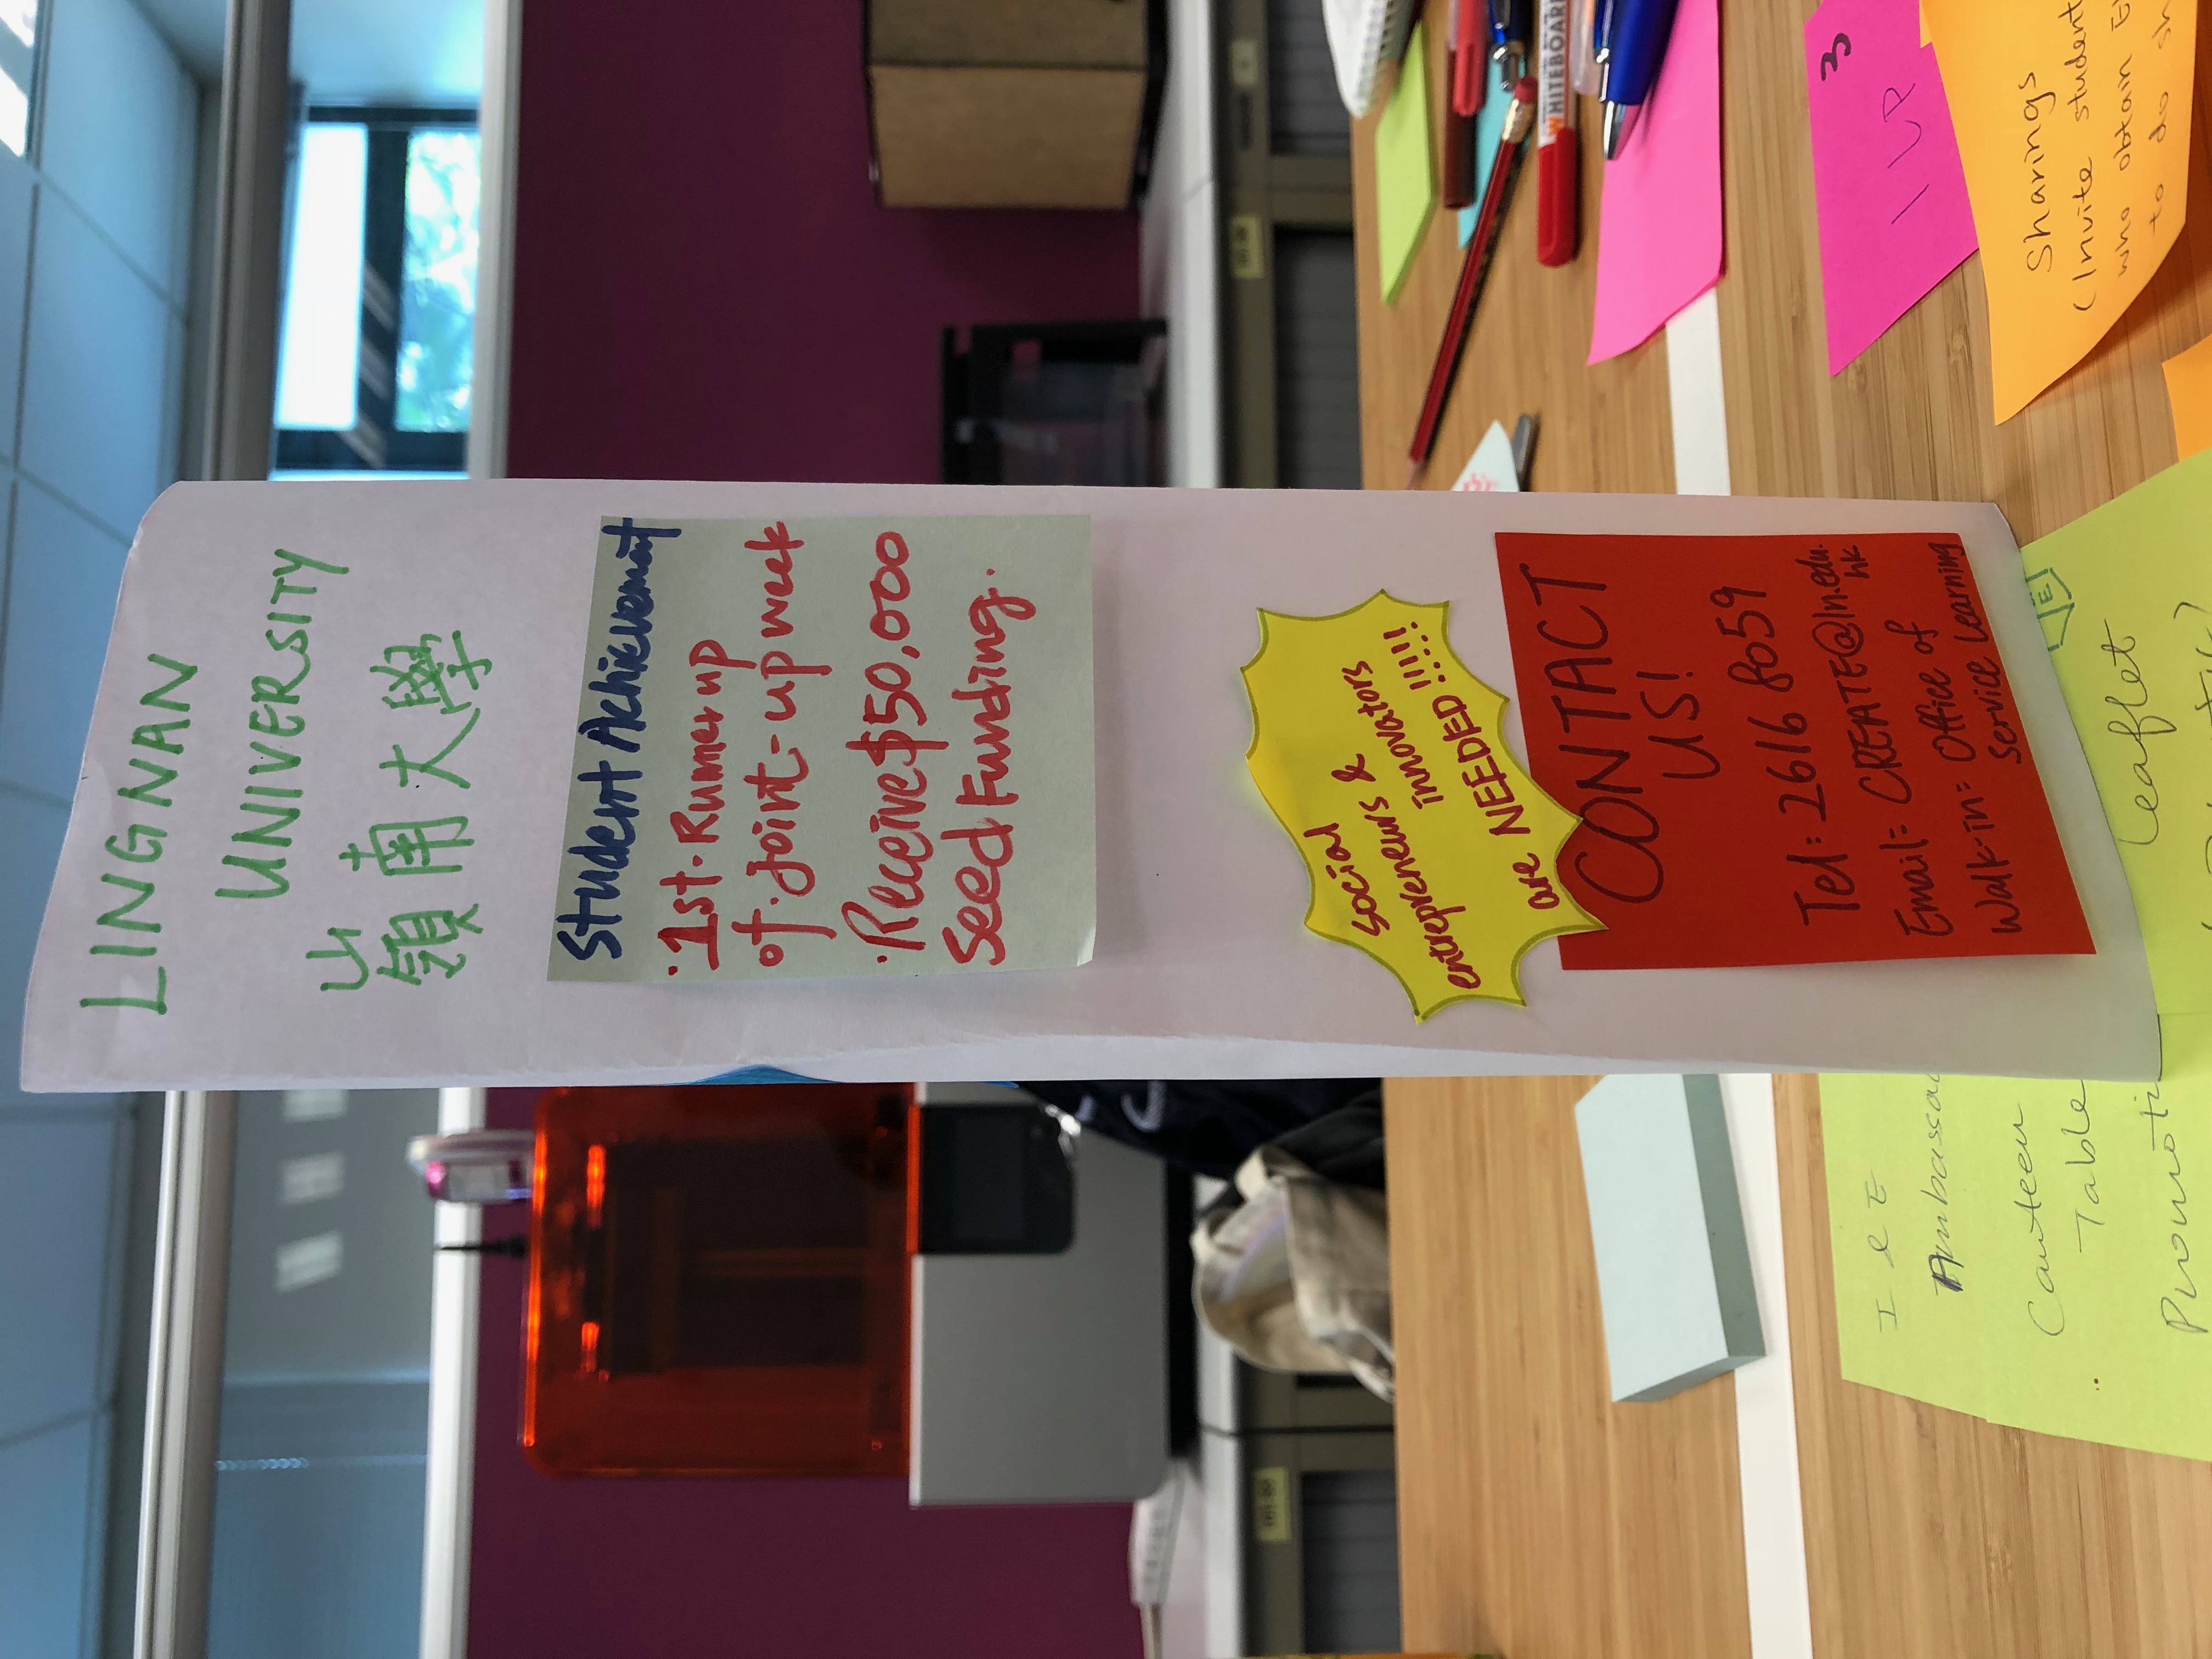 LINGNAN
UNIVERSITY
嶺南大學
Student Achievement
·1st-Runner up
of Joint-up week
·Receive $50,000
Seed Funding.
Social
entrepreneurs &
innovators
are NEEDED!!!!!
CONTACT
US!
Tel: 2616 8059
Email: CREATE@ln.edu.
hk
Walk-in: Office of
Service Learning
WHITEBOARD
3
1 UP
Sharings
(Invite student
who obtain
to do
Leaflet
I & E
Canteen
Table